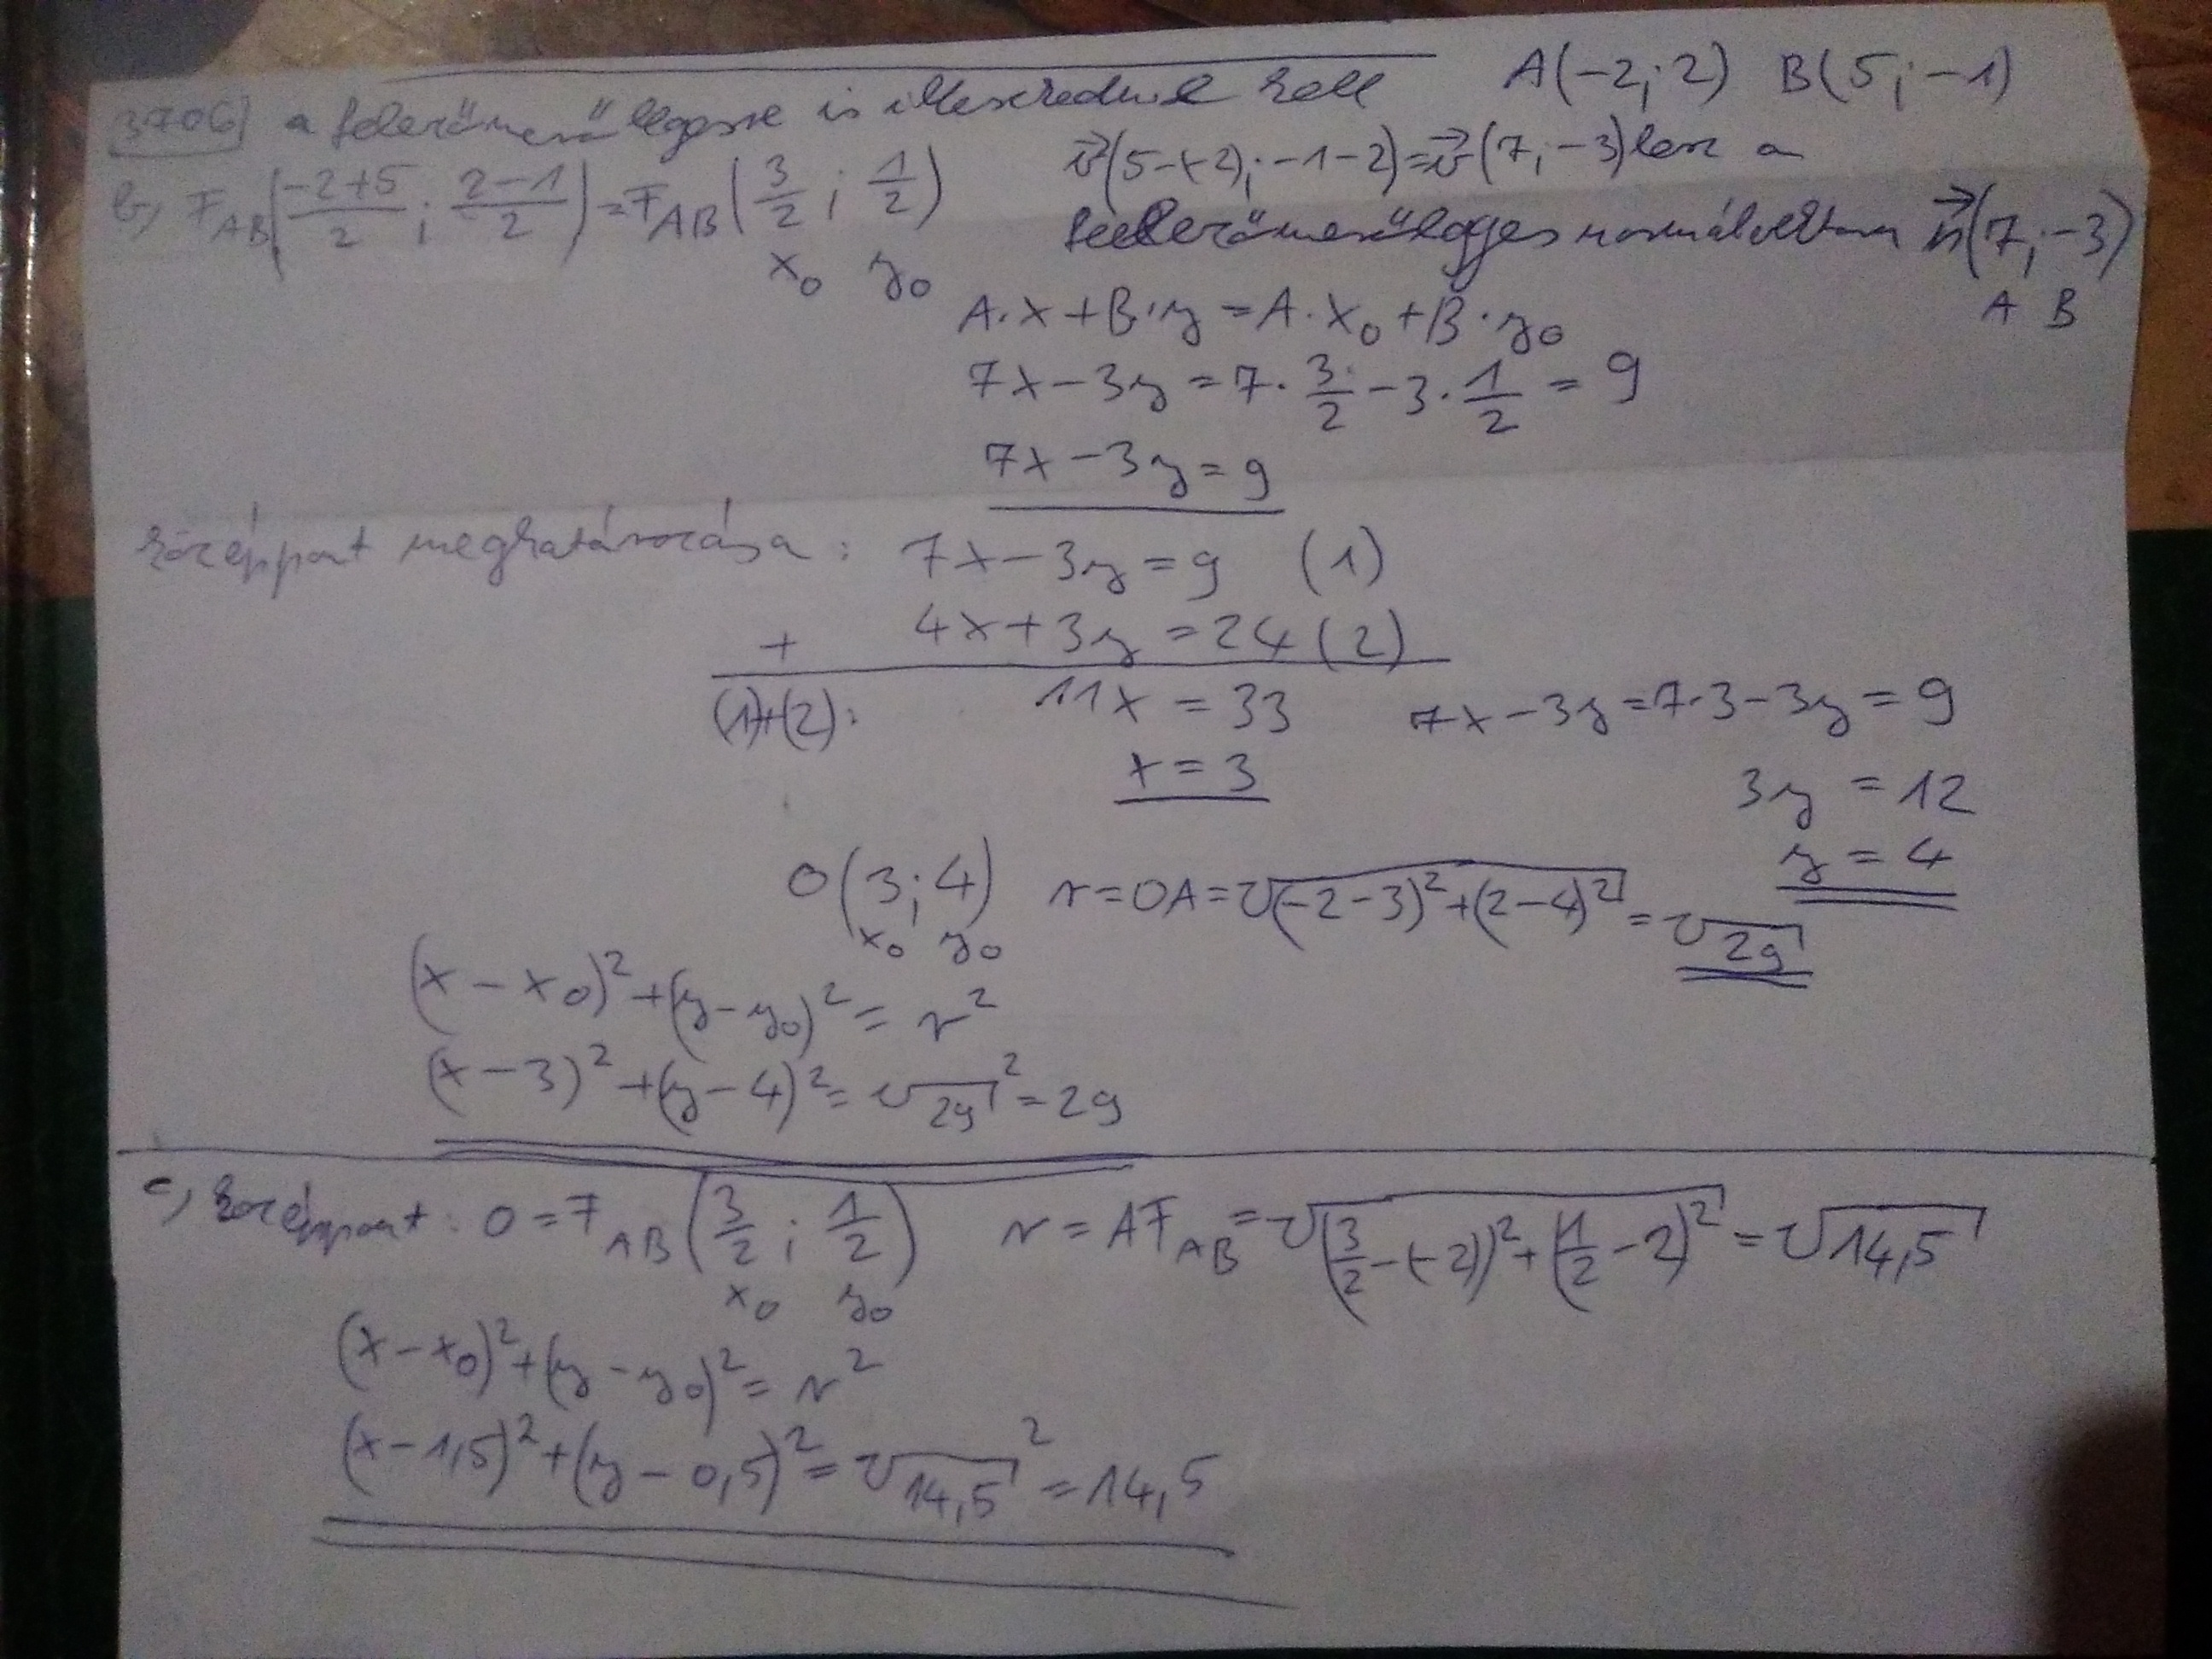 3706) a felezőmerőlegesre is illeszkednie kell A(-2;2) B(5;-1)
b, F_AB((-2+5)/2 ; (2-1)/2) = F_AB(3/2 ; 1/2) v⃗(5-(-2);-1-2)=v⃗(7;-3) lesz a
x₀ y₀ felezőmerőleges normálvektora n⃗(7;-3)
A B
A·x+B·y=A·x₀+B·y₀
7x-3y=7·3/2-3·1/2=9
7x-3y=9
középpont meghatározása: 7x-3y=9 (1)
+ 4x+3y=24 (2)
(1)+(2): 11x=33 7x-3y=7·3-3y=9
x=3 3y=12
y=4
O(3;4) r=OA=√((-2-3)²+(2-4)²)=√29
x₀ y₀
(x-x₀)²+(y-y₀)²=r²
(x-3)²+(y-4)²=√29²=29
c, középpont: O=F_AB(3/2 ; 1/2) r=AF_AB=√((3/2-(-2))²+(1/2-2)²)=√14,5
x₀ y₀
(x-x₀)²+(y-y₀)²=r²
(x-1,5)²+(y-0,5)²=√14,5²=14,5